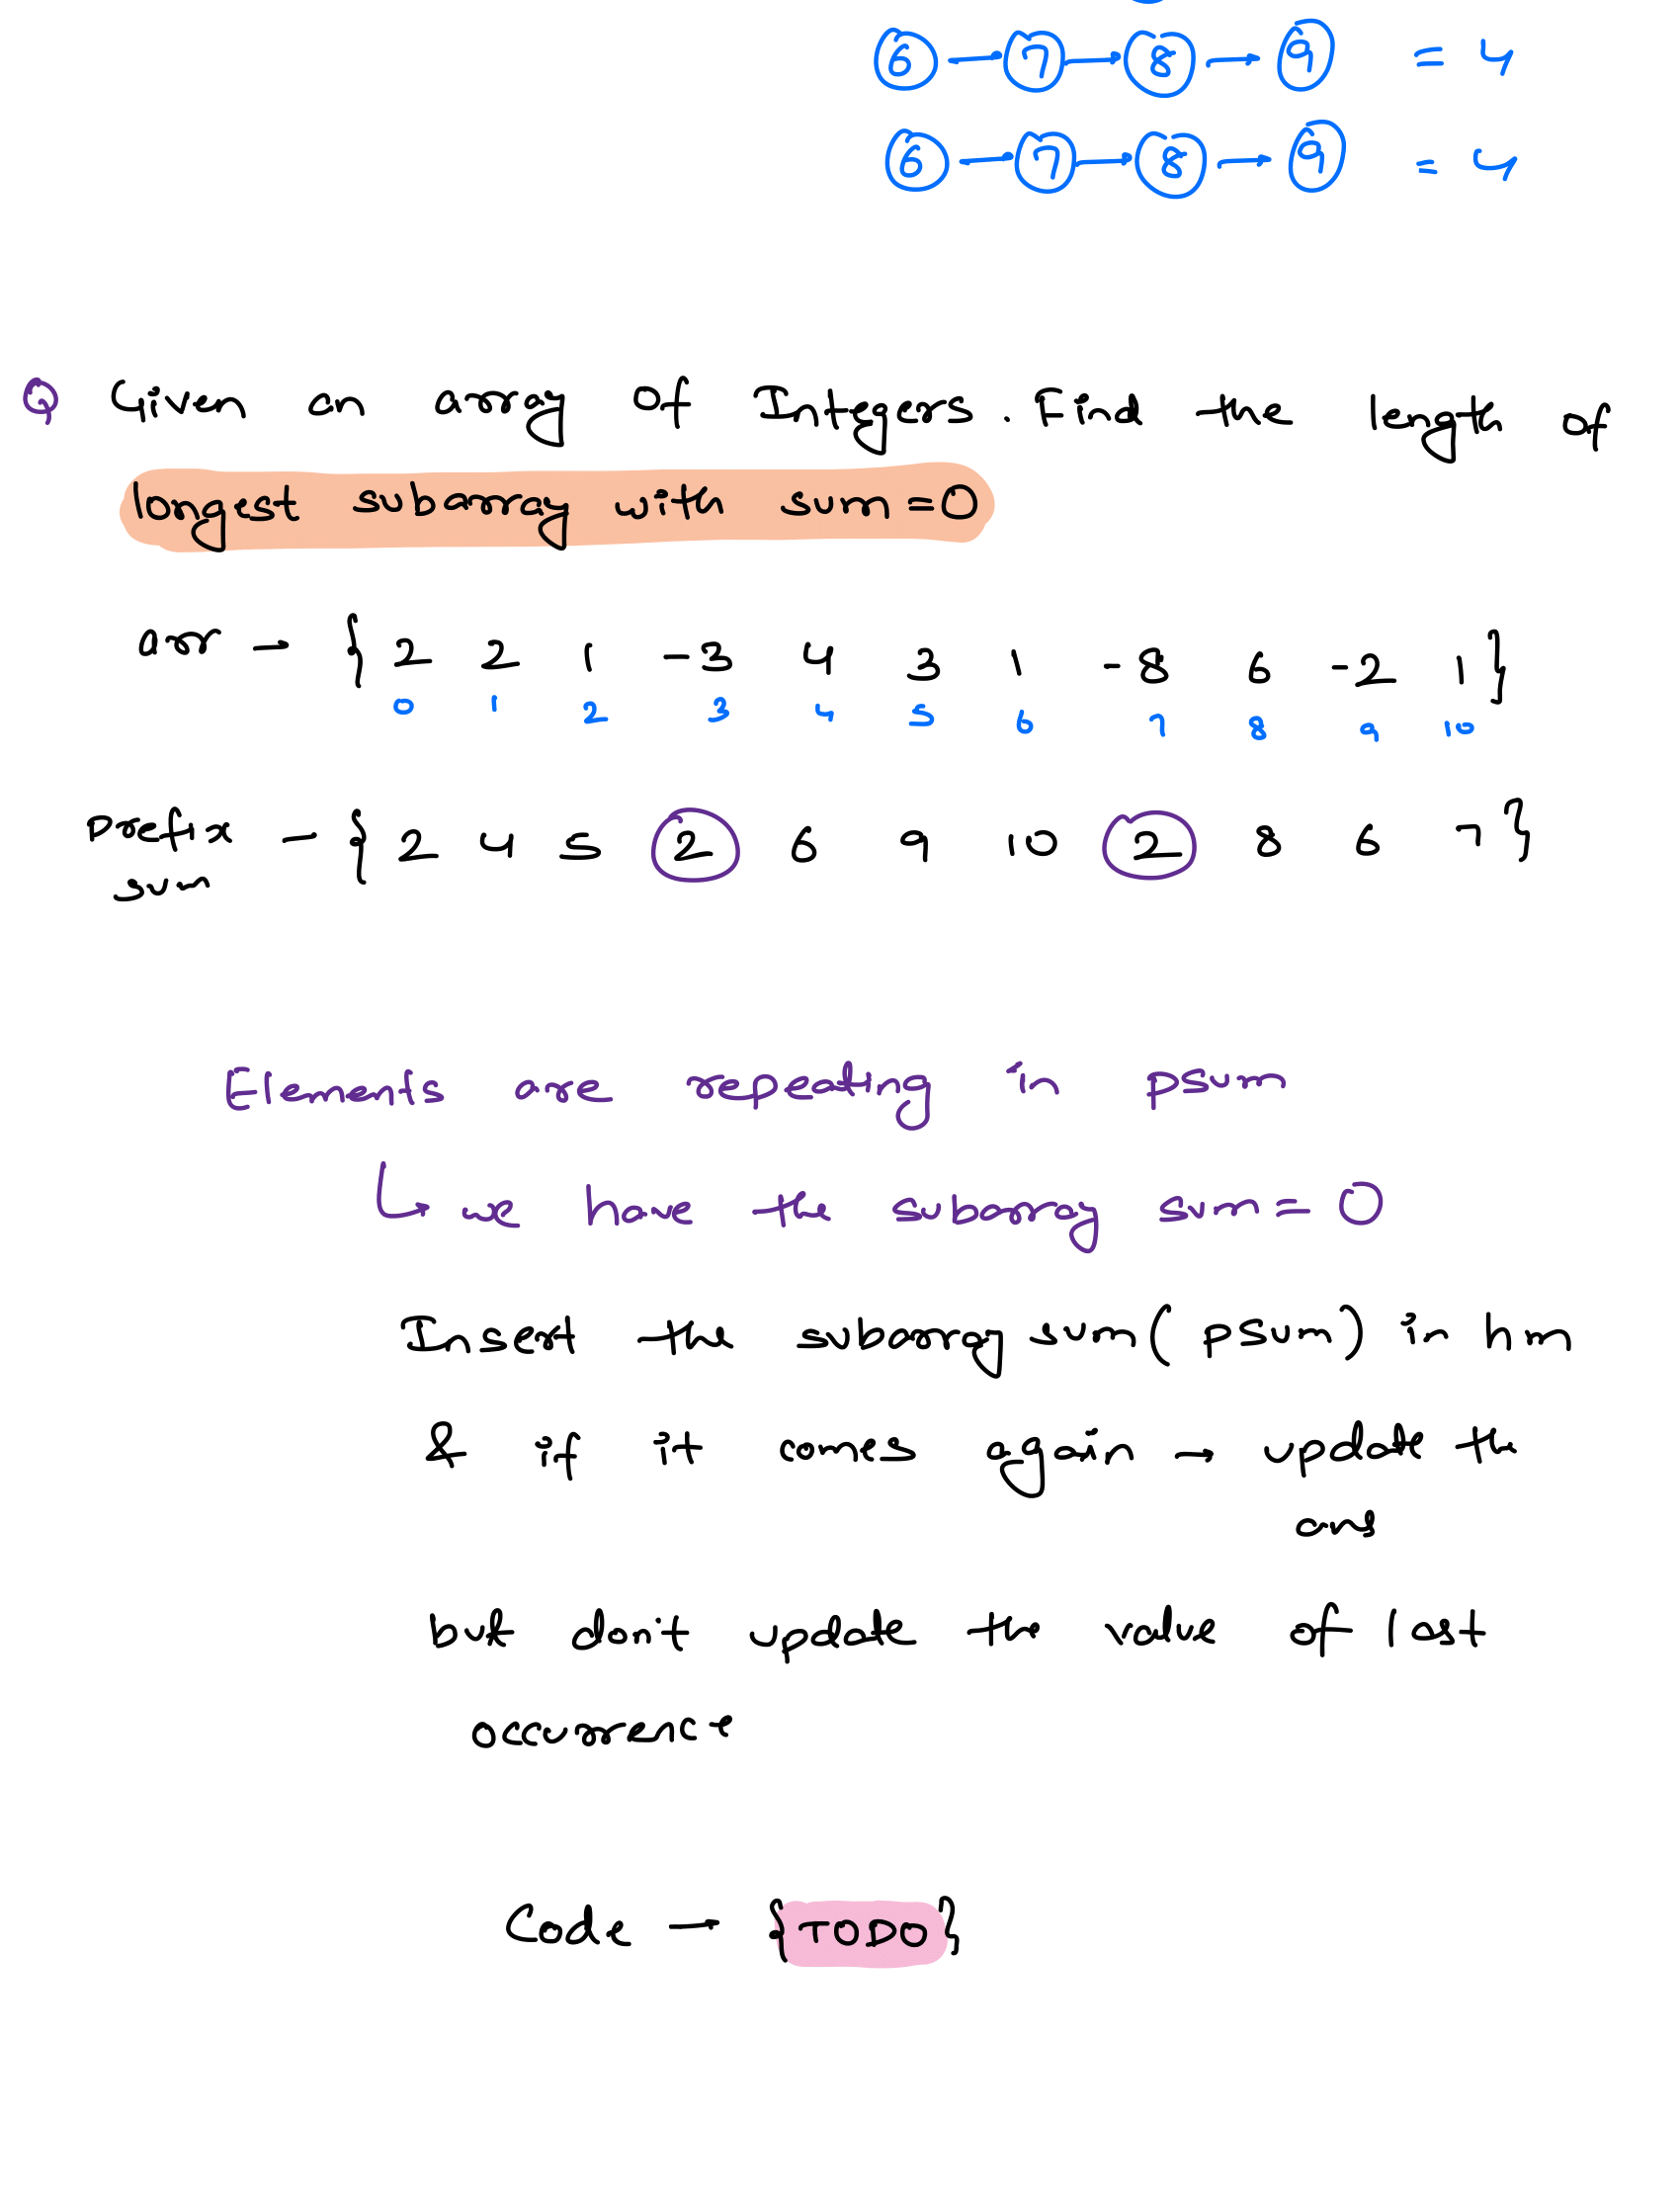 6 → 7 → 8 → 9 = 4
6 → 7 → 8 → 9 = 4
Q Given an array Of Integers. Find the length of
longest subarray with sum=0
arr - { 2 2 1 -3 4 3 1 -8 6 -2 1 }
0 1 2 3 4 5 6 7 8 9 10
prefix - { 2 4 5 2 6 9 10 2 8 6 7 }
sum
Elements are repeating in psum
↳ we have the subarray sum = 0
Insert the subarray sum( psum) in hm
& if it comes again → update the
ans
but don't update the value of last
occurrence
Code - {TODO}